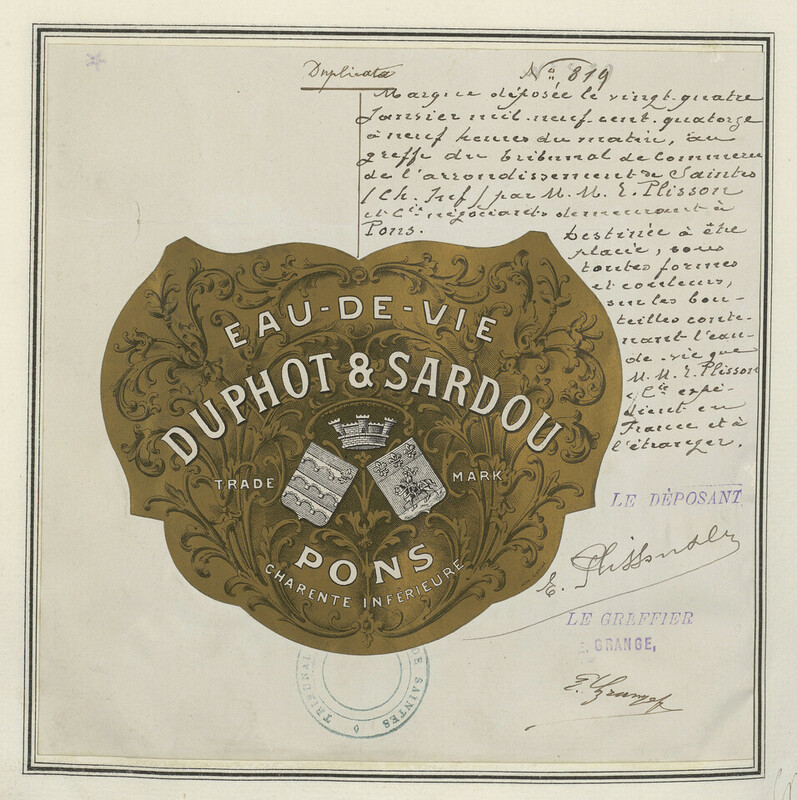 Duplicata
No 819
Marque déposée le vingt-quatre
Janvier mil neuf cent quatorze
à neuf heures du matin, au
greffe du tribunal de Commerce
de l'arrondissement de Saintes
(Ch. Infre) par M. M. E. Plisson
et Cie négociants demeurant à
Pons.
Destinée à être
placée, sous
toutes formes
et couleurs,
sur les bou-
teilles conte-
nant l'eau-
de-vie que
M. M. E. Plisson
& Cie expé-
dient en
France et à
l'étranger.
EAU-DE-VIE
DUPHOT & SARDOU
TRADE MARK
PONS
CHARENTE INFÉRIEURE
LE DÉPOSANT
E. Plisson & Cie
LE GREFFIER
E. GRANGE,
E. Grange
TRIBUNAL DE SAINTES